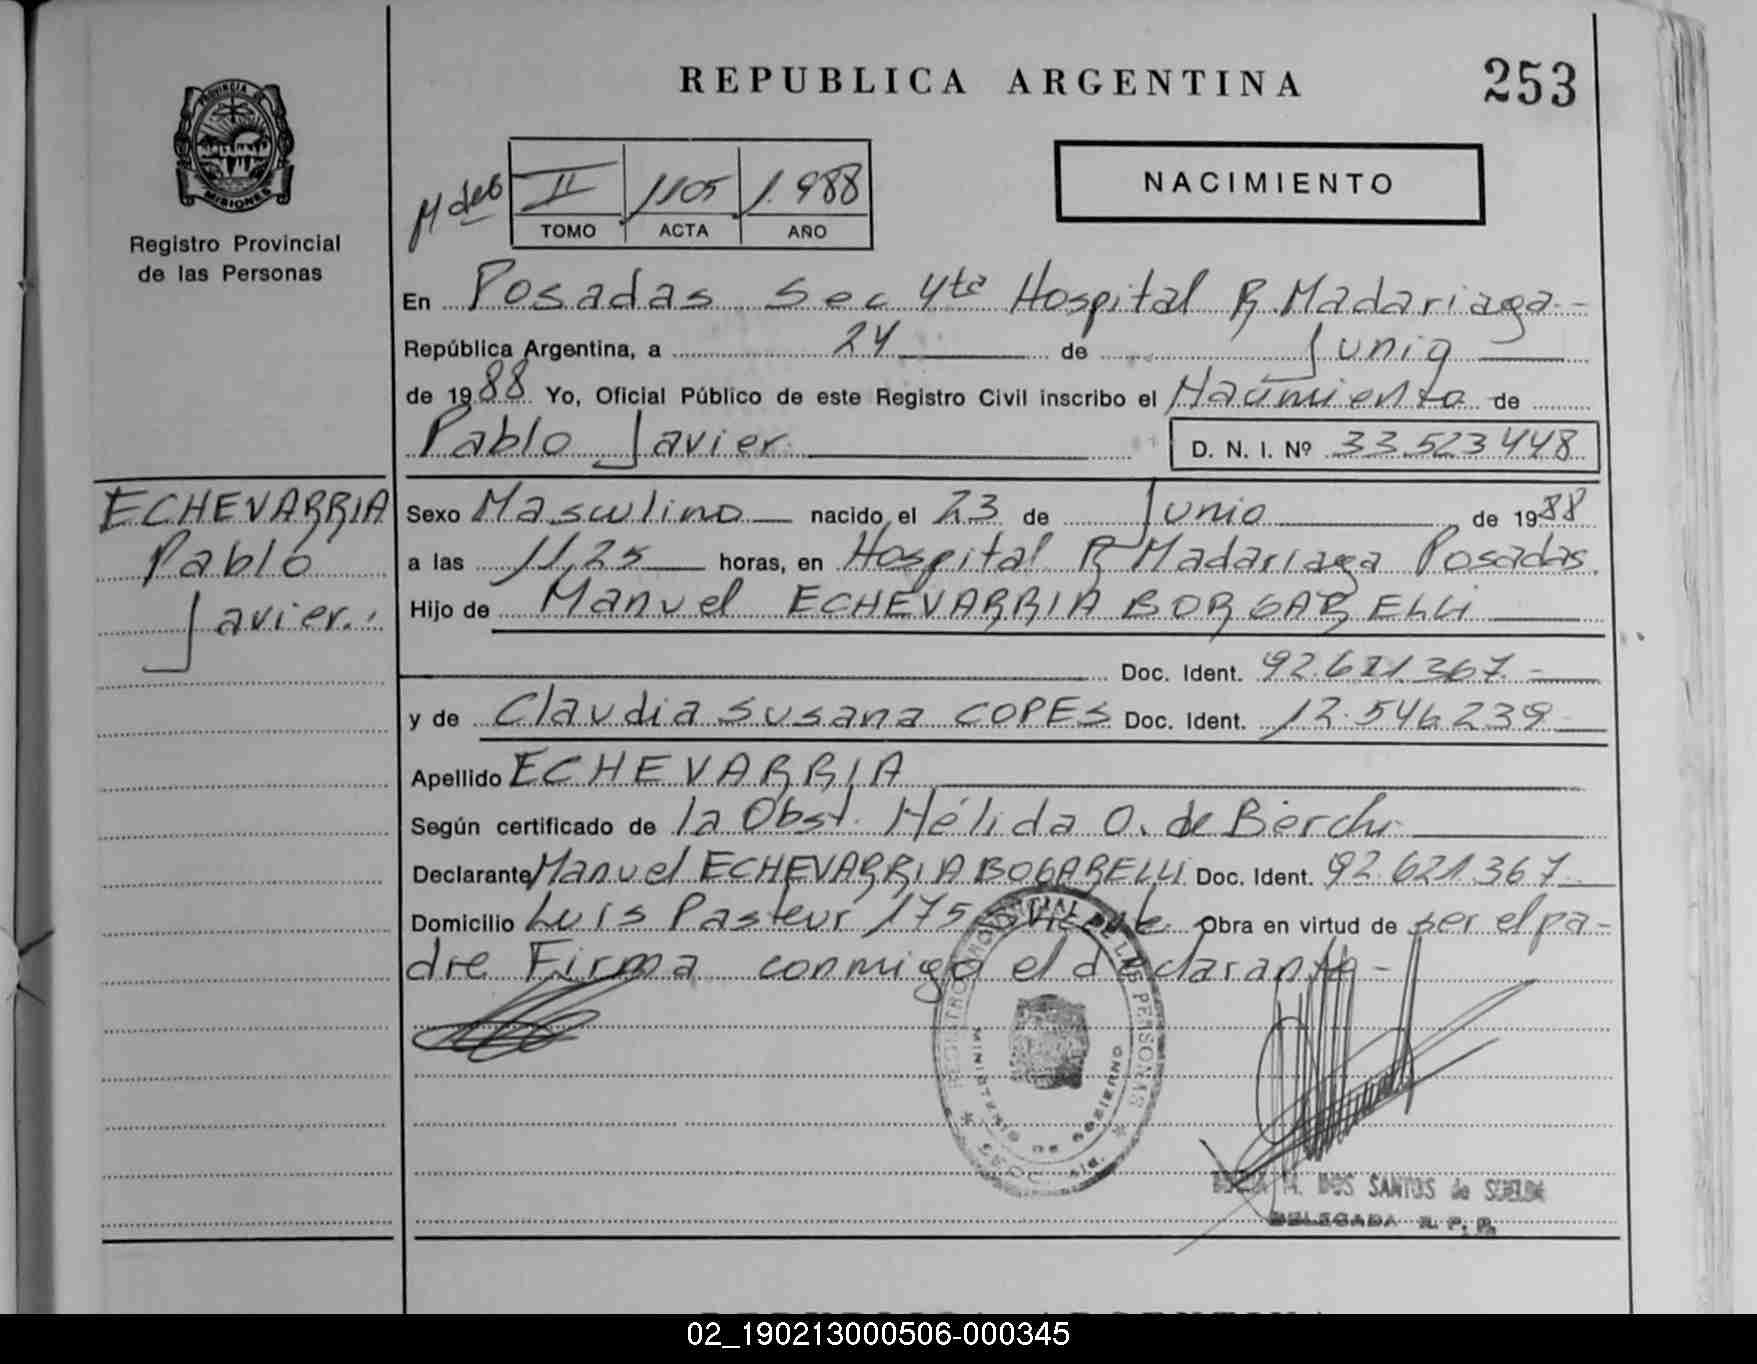 REPUBLICA ARGENTINA
253
PROVINCIA DE
MISIONES
Registro Provincial
de las Personas
II 1105 1.988
TOMO ACTA AÑO
NACIMIENTO
En Posadas Sec 4ta Hospital R. Madariaga-
República Argentina, a 24 de Junio
de 1988 Yo, Oficial Público de este Registro Civil inscribo el Nacimiento de
Pablo Javier D. N. I. Nº 33.523448
ECHEVARRIA
Pablo
Javier.:
Sexo Masculino nacido el 23 de Junio de 1988
a las 11,25 horas, en Hospital R Madariaga Posadas.
Hijo de Manuel ECHEVARRIA BORGARELLI
Doc. Ident. 92.621.367.-
y de Claudia Susana COPES Doc. Ident. 12.546.239
Apellido ECHEVARRIA
Según certificado de la Obst. Hélida O. de Berchi
Declarante Manuel ECHEVARRIA BOGARELLI Doc. Ident. 92.621.367
Domicilio Luis Pasteur 175 Obra en virtud de ser el pa-
dre Firma conmigo el declarante-
REGISTRO PROVINCIAL DE LAS PERSONAS
MINISTERIO DE GOBIERNO
M. DOS SANTOS de
DELEGADA R. P. P.
02_190213000506-000345